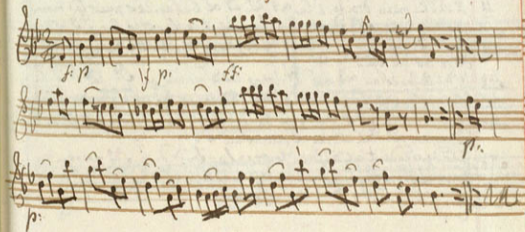 f: p f p: ff:
p:
p: